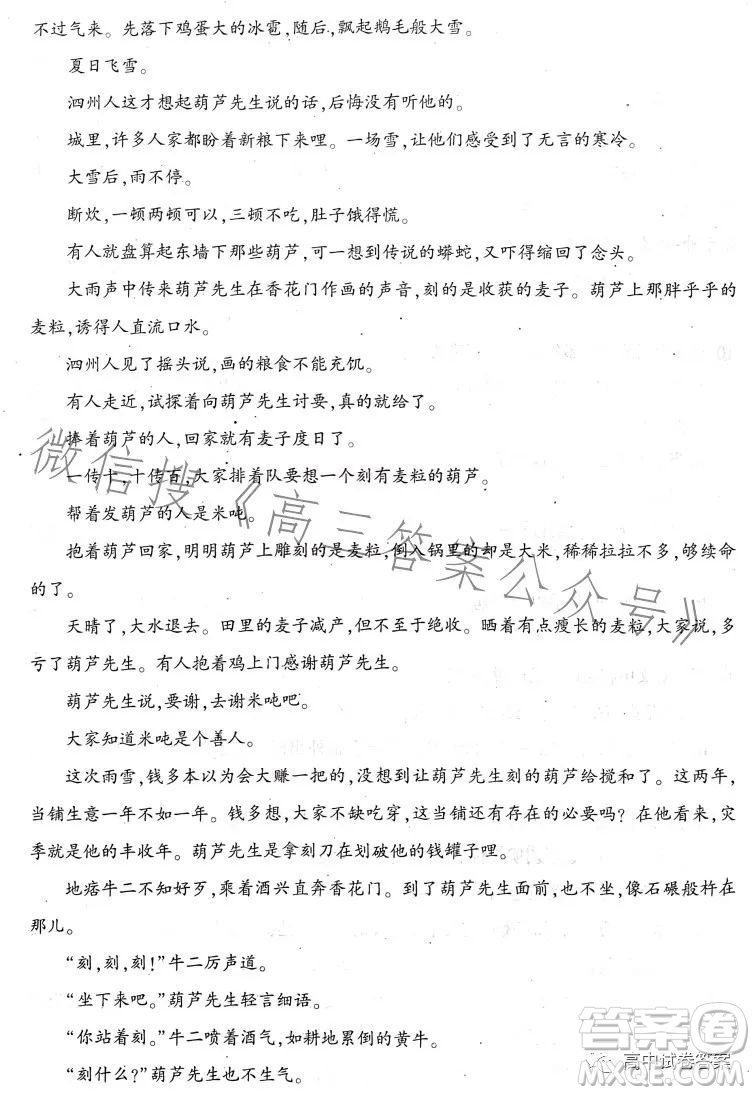 不过气来。先落下鸡蛋大的冰雹,随后,飘起鹅毛般大雪。
夏日飞雪。
泗州人这才想起葫芦先生说的话,后悔没有听他的。
城里,许多人家都盼着新粮下来哩。一场雪,让他们感受到了无言的寒冷。
大雪后,雨不停。
断炊,一顿两顿可以,三顿不吃,肚子饿得慌。
有人就盘算起东墙下那些葫芦,可一想到传说的蟒蛇,又吓得缩回了念头。
大雨声中传来葫芦先生在香花门作画的声音,刻的是收获的麦子。葫芦上那胖乎乎的
麦粒,诱得人直流口水。
泗州人见了摇头说,画的粮食不能充饥。
有人走近,试探着向葫芦先生讨要,真的就给了。
捧着葫芦的人,回家就有麦子度日了。
一传十,十传百,大家排着队要想一个刻有麦粒的葫芦。
帮着发葫芦的人是米吨。
抱着葫芦回家,明明葫芦上雕刻的是麦粒,倒入锅里的却是大米,稀稀拉拉不多,够续命
的了。
天晴了,大水退去。田里的麦子减产,但不至于绝收。晒着有点瘦长的麦粒,大家说,多
亏了葫芦先生。有人抱着鸡上门感谢葫芦先生。
葫芦先生说,要谢,去谢米吨吧。
大家知道米吨是个善人。
这次雨雪,钱多本以为会大赚一把的,没想到让葫芦先生刻的葫芦给搅和了。这两年,
当铺生意一年不如一年。钱多想,大家不缺吃穿,这当铺还有存在的必要吗?在他看来,灾
季就是他的丰收年。葫芦先生是拿刻刀在划破他的钱罐子哩。
地痞牛二不知好歹,乘着酒兴直奔香花门。到了葫芦先生面前,也不坐,像石碾般杵在
那儿。
“刻,刻,刻!”牛二厉声道。
“坐下来吧。”葫芦先生轻言细语。
“你站着刻。”牛二喷着酒气,如耕地累倒的黄牛。
“刻什么?”葫芦先生也不生气。
微信搜《高三答案公众号》
答案卷
高中试卷答案
MXQE.COM